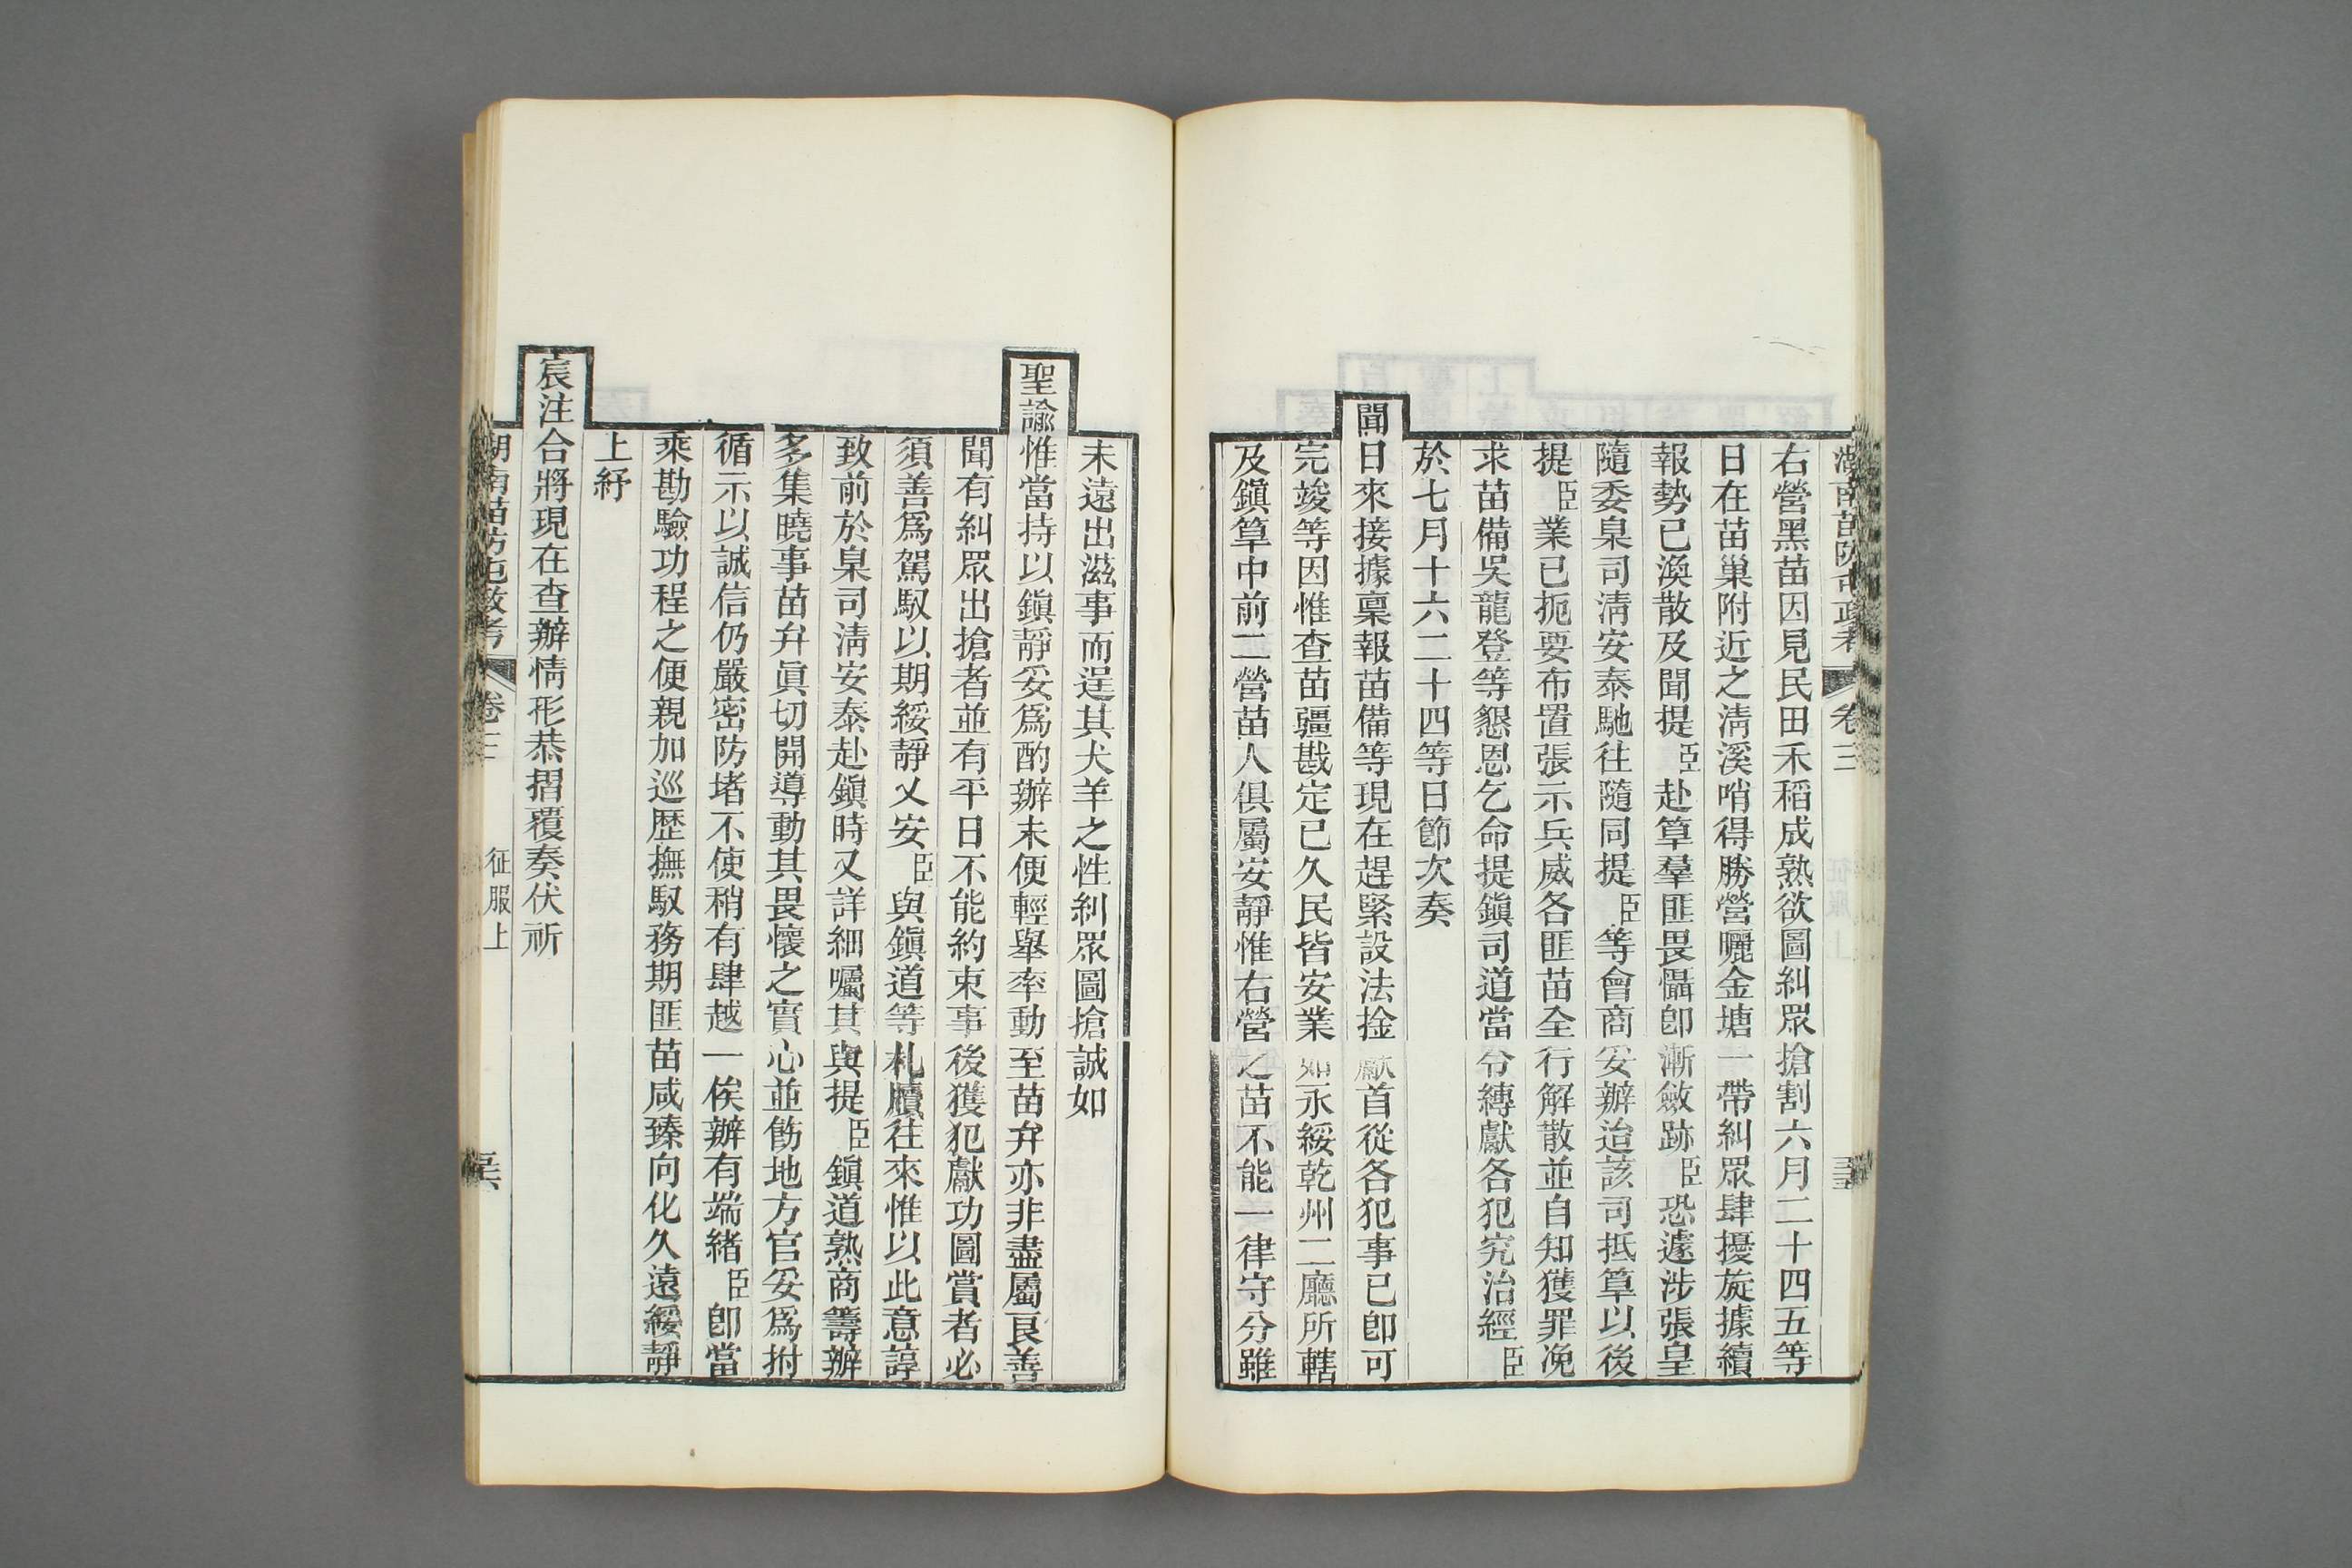 湖南苗防屯政考 卷三
右營黑苗因見民田禾稻成熟欲圖糾眾搶割六月二十四五等
日在苗巢附近之淸溪哨得勝營曬金塘一帶糾眾肆擾旋據續
報勢已渙散及聞提臣赴筸羣匪畏懾卽漸斂跡臣恐遽涉張皇
隨委臬司淸安泰馳往隨同提臣等會商妥辦迨該司抵筸以後
提臣業已扼要布置張示兵威各匪苗全行解散並自知獲罪凂
求苗備吳龍登等懇恩乞命提鎭司道當令縛獻各犯究治經臣
於七月十六二十四等日節次奏
聞日來接據稟報苗備等現在趕緊設法捡獻首從各犯事已卽可
完竣等因惟查苗疆戡定已久民皆安業如永綏乾州二廳所轄
及鎭筸中前二營苗人俱屬安靜惟右營之苗不能一律守分雖
未遠出滋事而逞其犬羊之性糾眾圖搶誠如
聖諭惟當持以鎭靜妥爲酌辦未便輕舉率動至苗弁亦非盡屬良善
聞有糾眾出搶者並有平日不能約束事後獲犯獻功圖賞者必
須善爲駕馭以期綏靜乂安臣與鎭道等札牘往來惟以此意諄
致前於臬司淸安泰赴鎭時又詳細囑其與提臣鎭道熟商籌辦
多集曉事苗弁眞切開導動其畏懷之實心並飭地方官妥爲拊
循示以誠信仍嚴密防堵不使稍有肆越一俟辦有端緒臣卽當
乘勘驗功程之便親加巡歷撫馭務期匪苗咸臻向化久遠綏靜
上紓
宸注合將現在查辦情形恭摺覆奏伏祈
湖南苗防屯政考 卷三 征服上